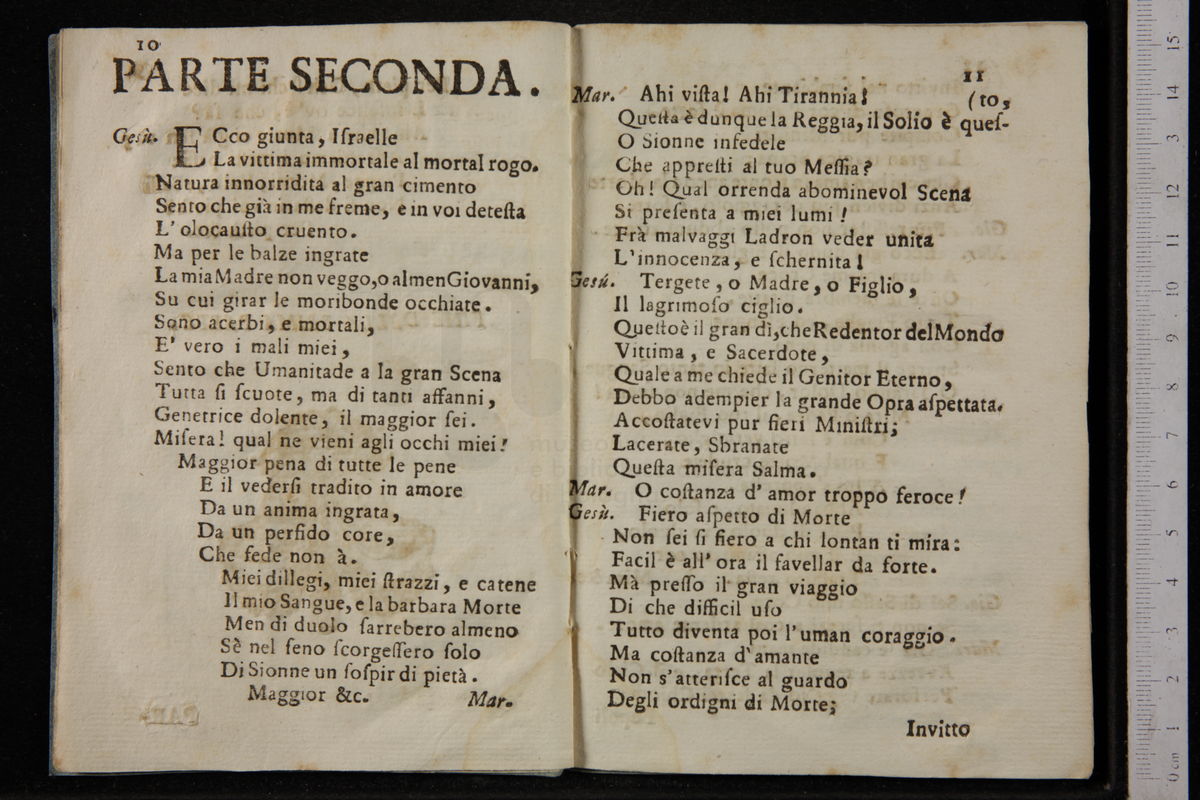 10
PARTE SECONDA.
Gesù. ECco giunta, Iſraelle
La vittima immortale al mortal rogo.
Natura innorridita al gran cimento
Sento che già in me freme, e in voi deteſta
L' olocauſto cruento.
Ma per le balze ingrate
La mia Madre non veggo, o almen Giovanni,
Su cui girar le moribonde occhiate.
Sono acerbi, e mortali,
E' vero i mali miei,
Sento che Umanitade a la gran Scena
Tutta ſi ſcuote, ma di tanti affanni,
Genetrice dolente, il maggior ſei.
Miſera! qual ne vieni agli occhi miei!
Maggior pena di tutte le pene
E il vederſi tradito in amore
Da un anima ingrata,
Da un perfido core,
Che fede non à.
Miei dillegi, miei ſtrazzi, e catene
Il mio Sangue, e la barbara Morte
Men di duolo ſarrebero almeno
Sè nel ſeno ſcorgeſſero ſolo
Di Sionne un ſoſpir di pietà.
Maggior &c.
Mar.
11
Mar. Ahi viſta! Ahi Tirannia!
(to,
Queſta è dunque la Reggia, il Solio è queſ-
O Sionne infedele
Che appreſti al tuo Meſſia?
Oh! Qual orrenda abominevol Scena
Si preſenta a miei lumi!
Frà malvaggi Ladron veder unita
L'innocenza, e ſchernita!
Gesú. Tergete, o Madre, o Figlio,
Il lagrimoſo ciglio.
Queſto è il gran dì, che Redentor del Mondo
Vittima, e Sacerdote,
Quale a me chiede il Genitor Eterno,
Debbo adempier la grande Opra aſpettata.
Accoſtatevi pur fieri Miniſtri;
Lacerate, Sbranate
Queſta miſera Salma.
Mar. O coſtanza d' amor troppo feroce!
Gesù. Fiero aſpetto di Morte
Non ſei ſi fiero a chi lontan ti mira:
Facil è all' ora il favellar da forte.
Mà preſſo il gran viaggio
Di che difficil uſo
Tutto diventa poi l'uman coraggio.
Ma coſtanza d'amante
Non s'atteriſce al guardo
Degli ordigni di Morte;
Invitto